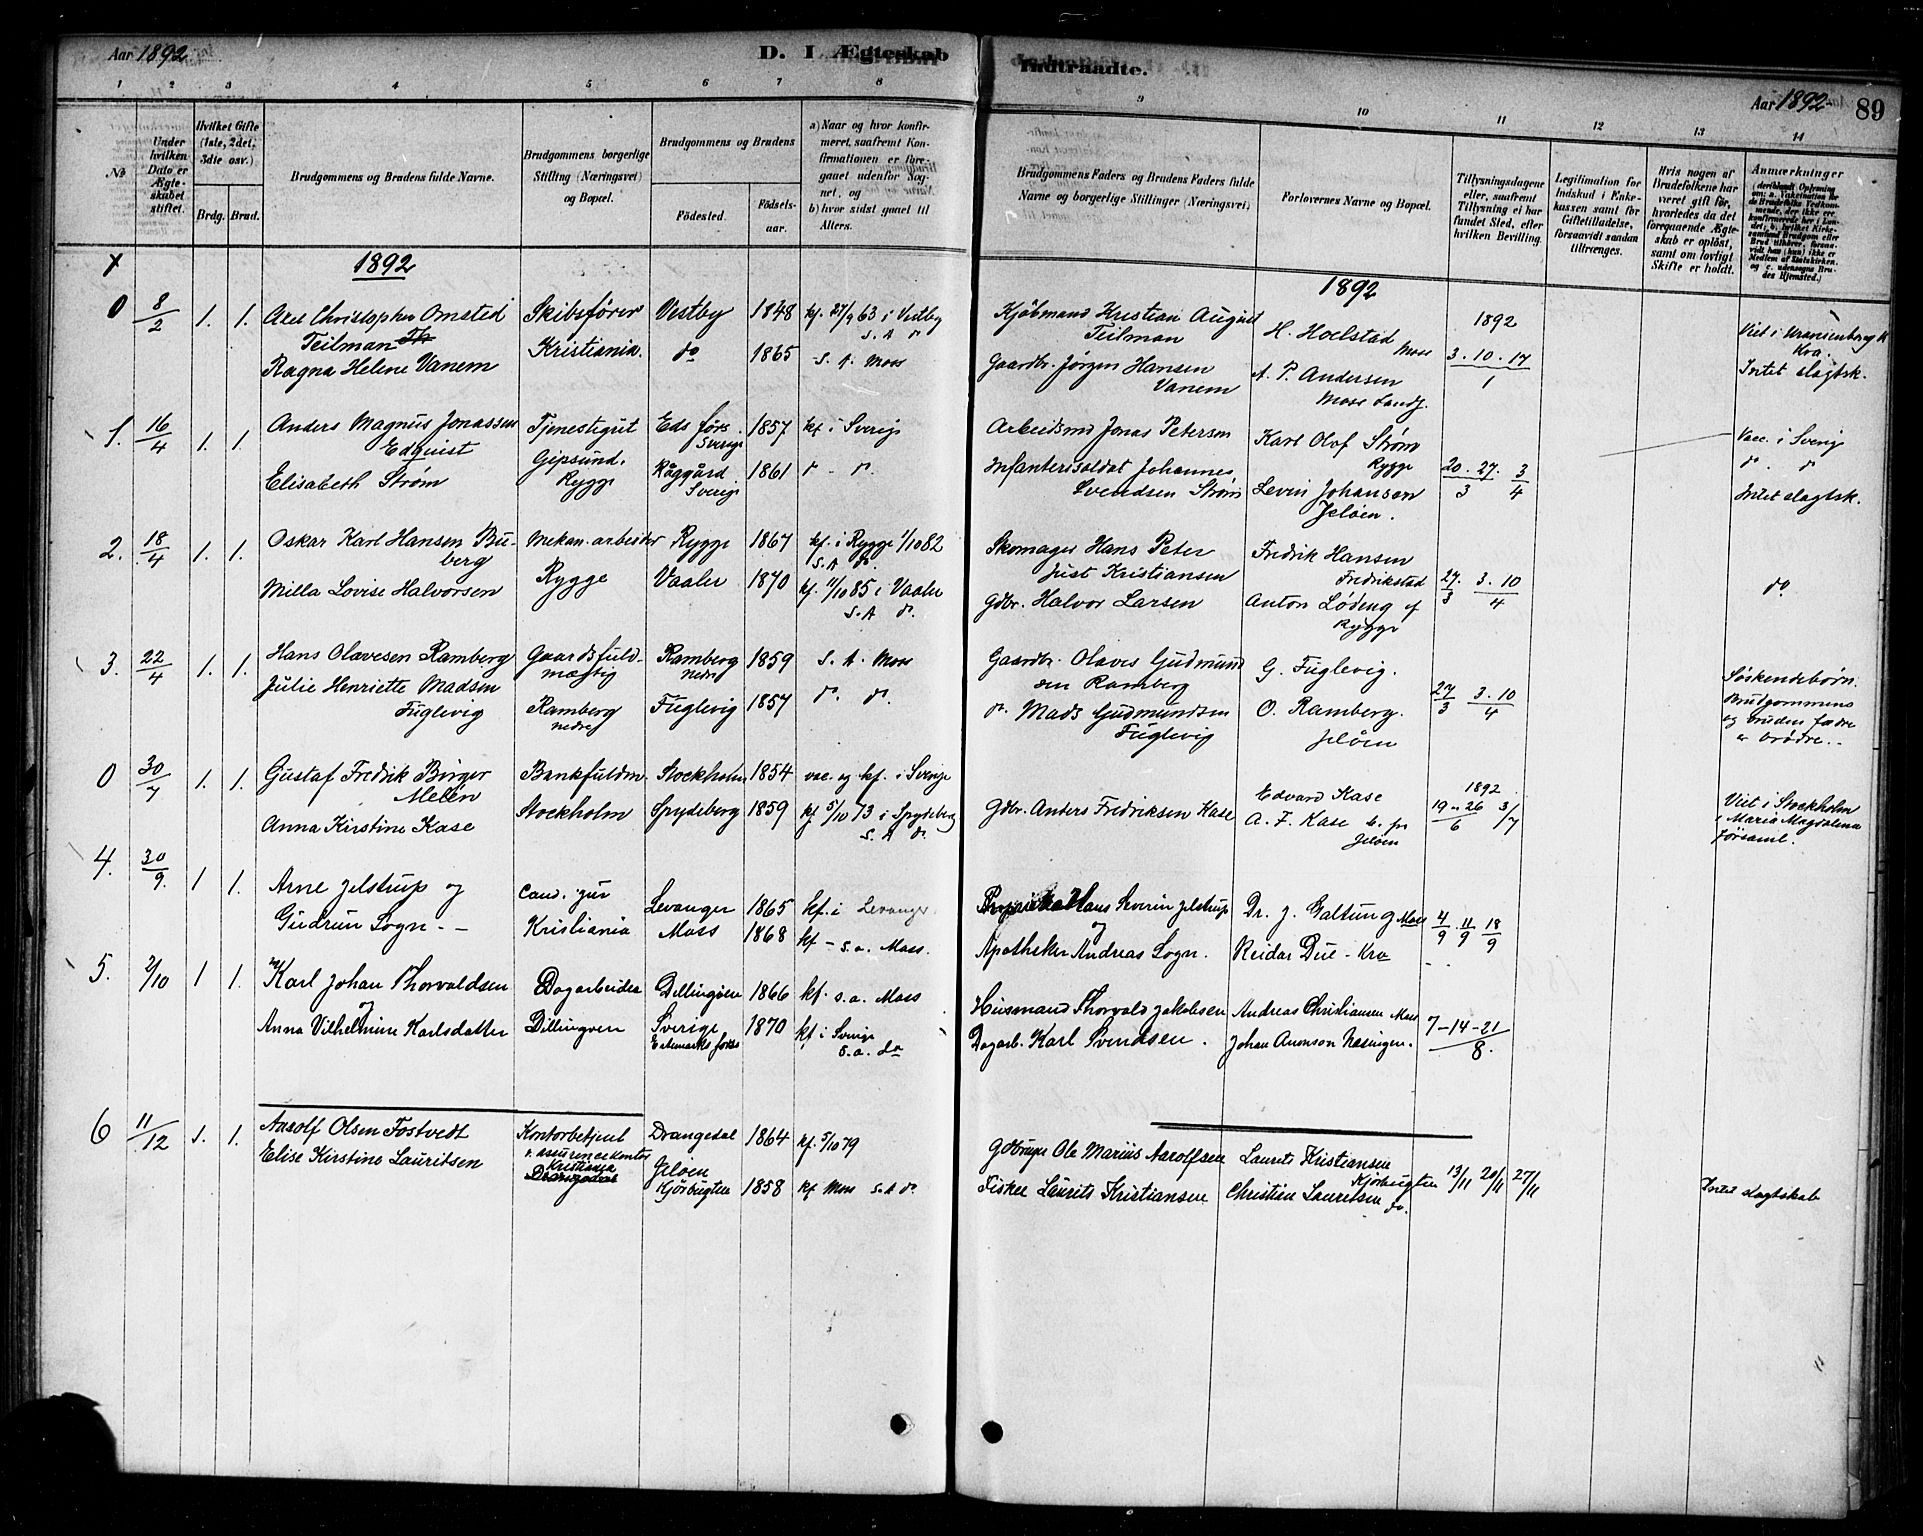 Aar 1892.
D. I Ægteskab
Indtraadte.
Aar 1892
89
1 2 3 4 5 6 7 8 9 10 11 12 13 14
No
Under hvilken Dato er Ægteskabet stiftet.
Hvilket Gifte (1ste, 2det, 3die osv.)
Brdg. Brud.
Brudgommens og Brudens fulde Navne.
Brudgommens borgerlige Stilling (Næringsvei) og Bopæl.
Brudgommens og Brudens
Fødested.
Fødselsaar.
a) Naar og hvor konfirmeret, saafremt Konfirmationen er foregaaet udenfor Sognet, og
b) hvor sidst gaaet til Alters.
Brudgommens Faders og Brudens Faders fulde Navne og borgerlige Stillinger (Næringsvei)
Forlovernes Navne og Bopæl.
Tillysningsdagene eller, saafremt Tillysning ei har fundet Sted, efter hvilken Bevilling.
Legitimation for Indskud i Enkekassen samt for Giftetilladelse, forsaavidt saadan tiltrænges.
Hvis nogen af Brudefolkene har været gift før, hvorledes da det foregaaende Ægteskab er opløst, samt om lovligt Skifte er holdt.
Anmærkninger
1892
1892
0 8/2 1. 1. Axel Christopher Omsted Teilman
Skibsfører Kristiania.
Vestby 1848 kf. 27/9 63 i Vestby S. A do
Ragna Helene Vanem
do 1865 S. A. Moss
Kjøbmand Kristian August Teilman
Gaardbr. Jørgen Hansen Vanem
H. Hoelstad Moss
A. P. Andersen Moss Landf.
1892 3. 10. 17/1
Viet i Uranienborg K Kra.
Intet slagtsk.
1. 16/4 1. 1. Anders Magnus Jonassen Edquist
Elisabeth Strøm
Tjenestegut Gipsund. Rygge
Eds förs. Sverige 1857 kf i Sverige
Råggård Sverige 1861 do - do.
Arbeidsmd Jonas Petersen
Infanterisoldat Johannes Svendsen Strøm
Karl Olof Strøm Rygge
Levin Johansen Jeløen.
20. 27./3 3/4
Vacc. i Sverige
do. do
Intet slagtsk.
2. 18/4 1. 1. Oskar Karl Hansen Buberg
Milla Lovise Halvorsen
Mekan. arbeider Rygge
Rygge 1867 kf. i Rygge 1/10 82 S. A do.
Vaaler 1870 kf. 11/10 85 i Vaaler S. A do.
Skomager Hans Peter Just Kristiansen
Gdbr. Halvor Larsen
Fredrik Hansen Fredrikstad
Anton Lødeng af Rygge
27./3 3. 10/4
do
3. 22/4 1. 1. Hans Olavesen Ramberg
Julie Henriette Madsen Fuglevig
Gaardsfuldmægtig Ramberg nedre
Ramberg nedre 1859 S. A. Moss
Fuglevig 1857 do. do.
Gaardbr. Olaves Gudmundsen Ramberg
do. Mads Gudmundsen Fuglevig
G. Fuglevig.
O. Ramberg. Jeløen
27/3 3. 10/4
Søskendebørn. Brudgommens og bruden fædre er brødre.
0 30/7 1. 1. Gustaf Fredrik Birger Melén
Anna Kirstine Kase
Bankfuldm. Stockholm
Stockholm 1854 vac. og kf. i Sverige
Spydeberg 1859 kf 5/10 73 i Spydeberg S. A do
Gdbr. Anders Fredriksen Kase
Edvard Kase
A. F. Kase Jeløen
1892 19 " 26/6 3/7
Viet i Stockholm i Maria Magdalena församl.
4. 30/9. 1 1. Arne Jelstrup og
Gudrun Sogn. -
Cand. jur Kristiania
Levanger 1865 kf. i Levanger
Moss 1868 kf - s. a. Moss.
Hans Severin Jelstrup
og
Apotheker Andreas Sogn.
Dr. J. Galtung Moss
Reidar Due - Kra
4/9. 11/9 18/9
5. 2/10 1 1. Karl Johan Thorvaldsen
og
Anna Vilhelmine Karlsdatter
Dagarbeider Dillingøen
Dillingøen 1866 kf. s. a. Moss
Sverige 1870 kf i Sverige s. a. do
Husmand Thorvald Jakobsen
Dagarb. Karl Svendsen.
Andreas Christiansen Moss
Johan Aronson Næsingen.
7-14-21/8.
6 11/12 1. 1. Aarolf Olsen Tostvedt
Elise Kirstine Lauritsen
Kontorbetjent v. assurancekontor Kristiania
Drangedal 1864 kf. 5/10 79
Jeløen Kjørbugten 1858 kf Moss S. A do.
Gdbruger Ole Marius Aarolfsen
Fisker Laurits Kristiansen
Laurits Kristiansen Kjørbugten
Christian Lauritsen do.
13/11 20/11 27/11
Intet slagtskab